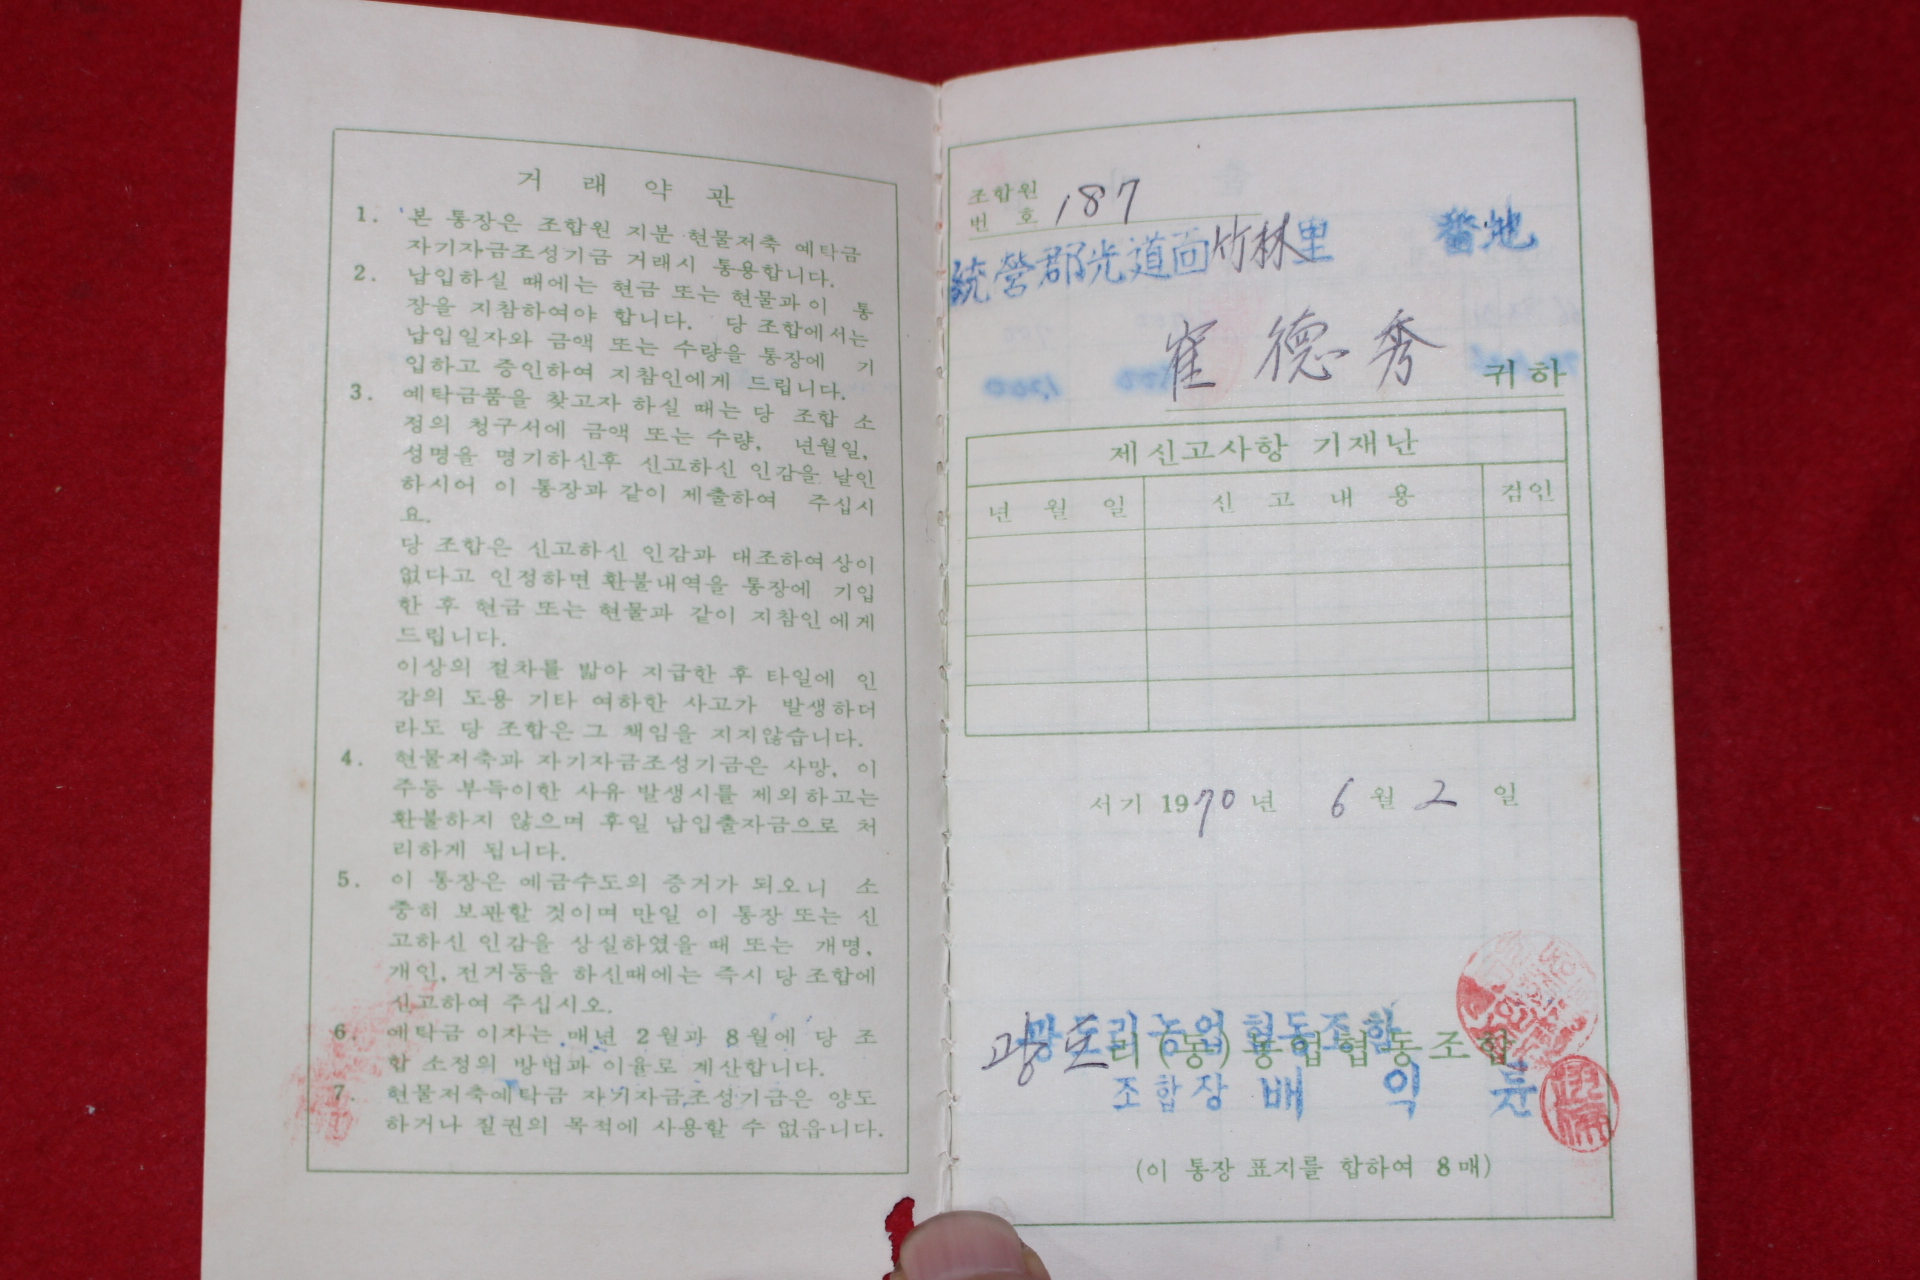 거래약관
1. 본 통장은 조합원 지분 현물저축 예탁금
자기자금조성기금 거래시 통용합니다.
2. 납입하실 때에는 현금 또는 현물과 이 통
장을 지참하여야 합니다. 당 조합에서는
납입일자와 금액 또는 수량을 통장에 기
입하고 증인하여 지참인에게 드립니다.
3. 예탁금품을 찾고자 하실 때는 당 조합 소
정의 청구서에 금액 또는 수량, 년월일,
성명을 명기하신후 신고하신 인감을 날인
하시어 이 통장과 같이 제출하여 주십시
요.
당 조합은 신고하신 인감과 대조하여 상이
없다고 인정하면 환불내역을 통장에 기입
한 후 현금 또는 현물과 같이 지참인에게
드립니다.
이상의 절차를 밟아 지급한 후 타일에 인
감의 도용 기타 여하한 사고가 발생하더
라도 당 조합은 그 책임을 지지않습니다.
4. 현물저축과 자기자금조성기금은 사망, 이
주등 부득이한 사유 발생시를 제외하고는
환불하지 않으며 후일 납입출자금으로 처
리하게 됩니다.
5. 이 통장은 예금수도의 증거가 되오니 소
중히 보관할 것이며 만일 이 통장 또는 신
고하신 인감을 상실하였을 때 또는 개명,
개인, 전거등을 하신때에는 즉시 당 조합에
신고하여 주십시오.
6. 예탁금 이자는 매년 2월과 8월에 당 조
합 소정의 방법과 이율로 계산합니다.
7. 현물저축예탁금 자기자금조성기금은 양도
하거나 질권의 목적에 사용할 수 없읍니다.
조합원
번 호 187
統營郡光道面竹林里 番地
崔德秀 귀하
제신고사항 기재난
년 월 일 신고내용 검인
서기 1970년 6월 2일
광도리농업협동조합
광도리(동)농업협동조합
조합장 배익윤
(이 통장 표지를 합하여 8매)